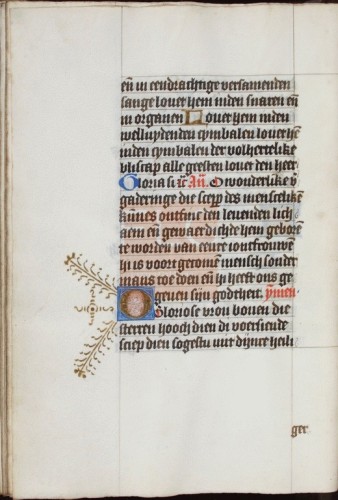 eñ in eendrachtige versamenden
sange Louet hem inden snaren eñ
in organen Louet hem inden
welluydenden cymbalen louet hē
inden cymbalen der volhertelike
bliscap alle geesten louet den heer
Gloria si Añ O wonderlike v̄
gaderinge die scepp des menscelikē
ontfinc den leuenden lich
aem eñ gewaerdichde hem geborē
te worden van eenre ioncfrouwē
is voort gecomē mensch sonder
mans toe doen eñ hi heeft ons ge
geuen sijn godtheit ymen
O Gloriose vrou bouen die
sterren hooch dien di voersiende
sciep dien sogestu mit dijnre heili
ger